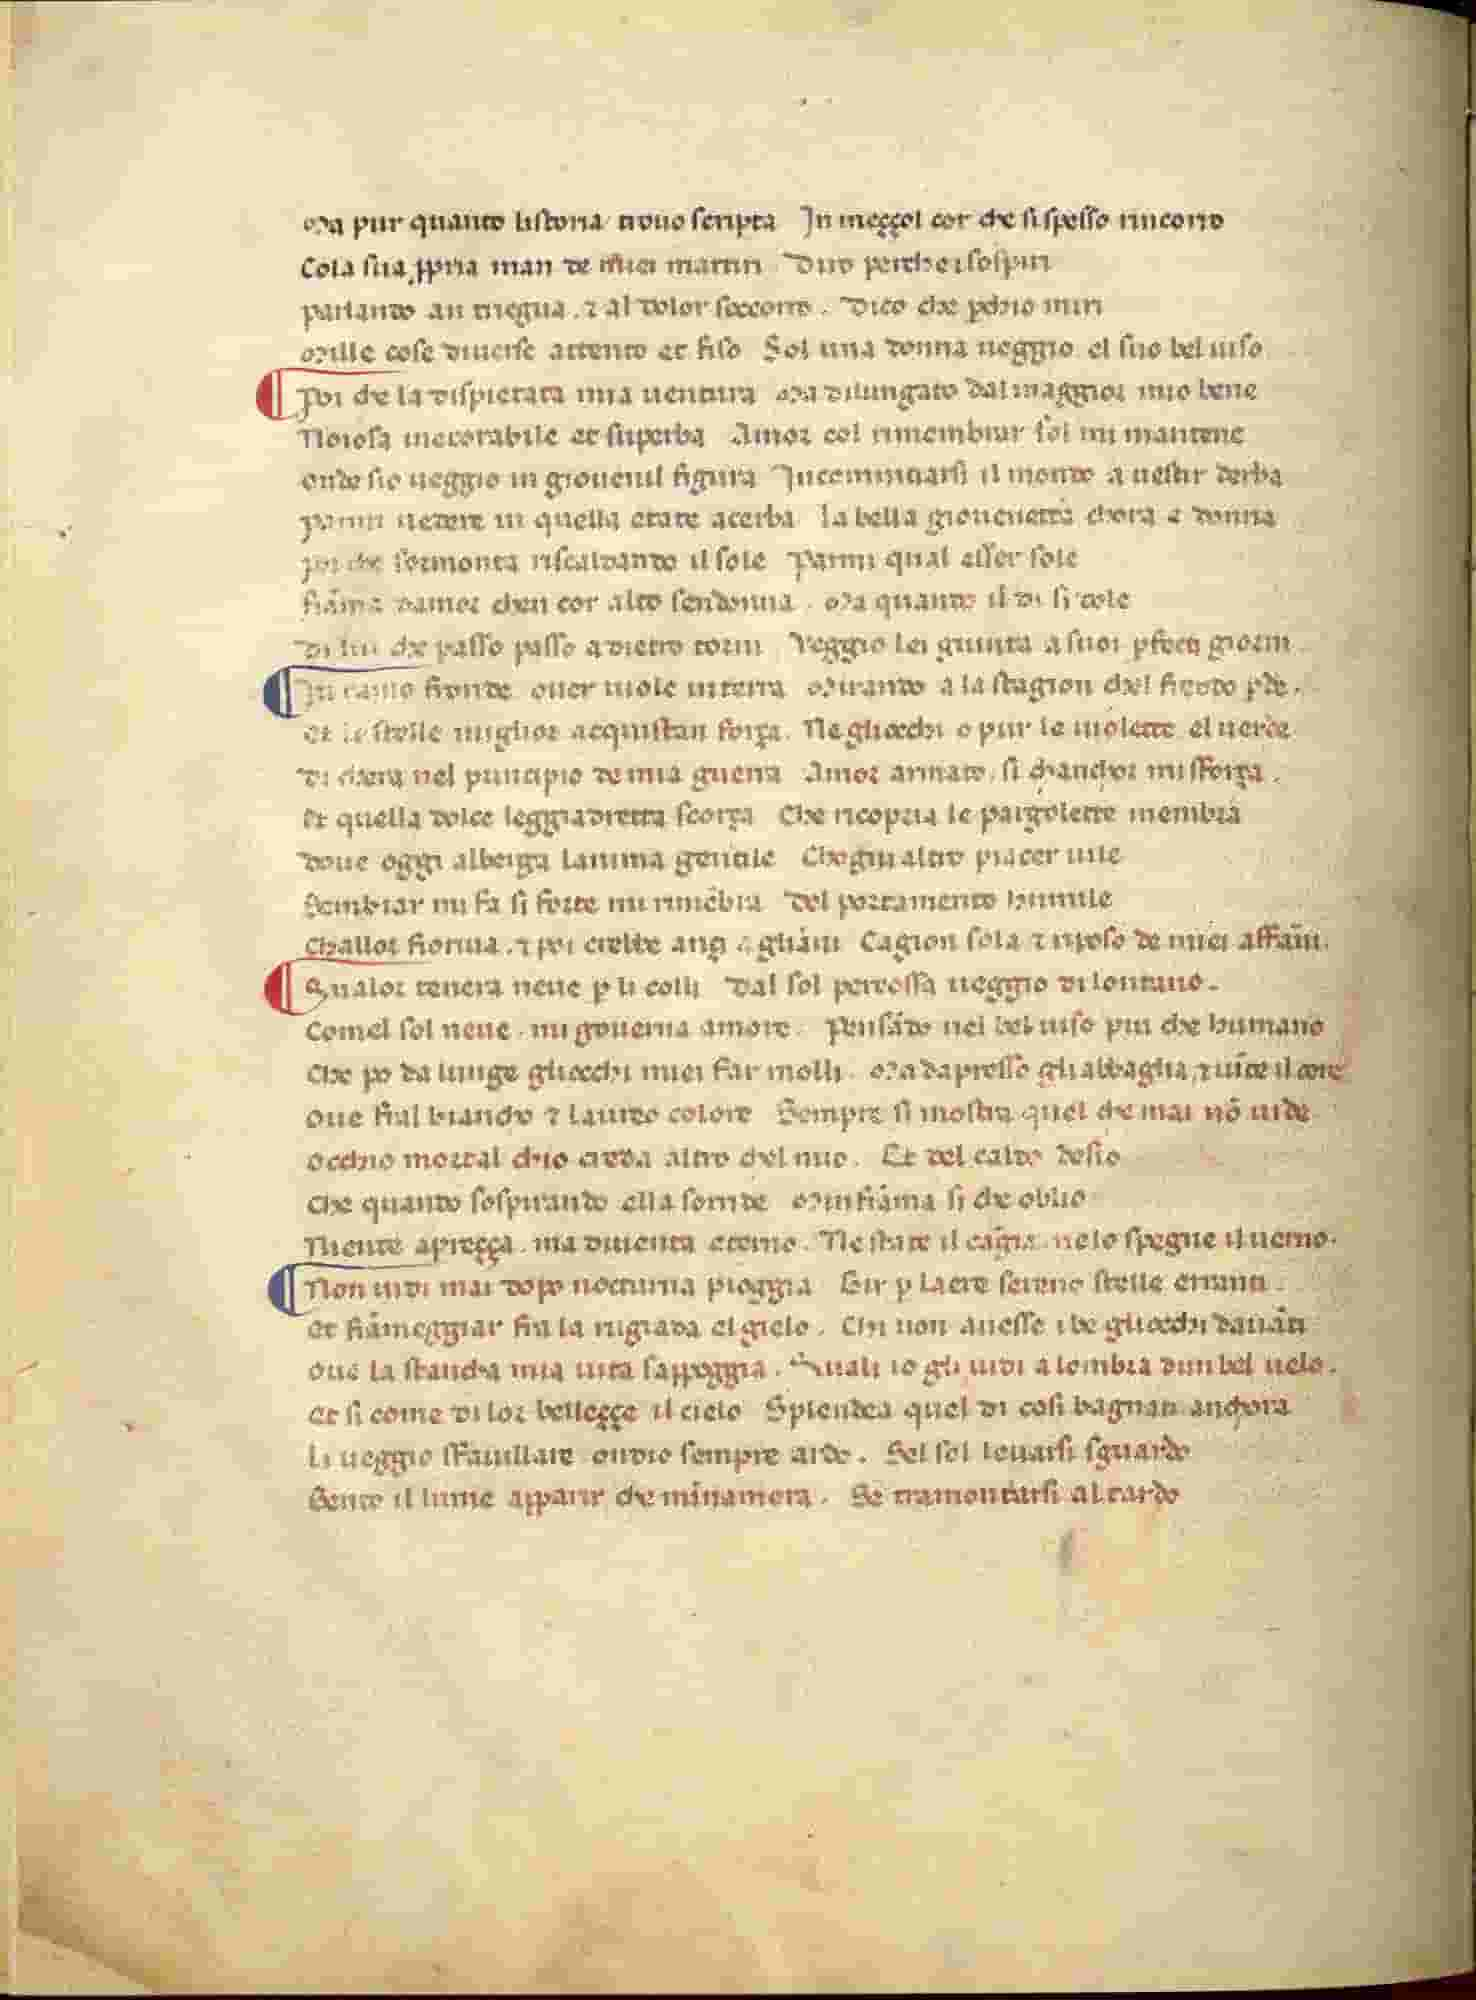 Ma pur quanto listoria trouo scripta In meççol cor che si spesso rincorro
Cola sua ꝓpria man de miei martiri Diro perche i sospiri
parlando an triegua. ⁊ al dolor soccorro. Dico che ꝑchio miri
Mille cose diuerse attento et fiso Sol una donna ueggio el suo bel uiso
Poi che la dispietata mia uentura Ma dilungato dal maggior mio bene
Noiosa inexorabile et superba Amor col rimembrar sol mi mantene
onde sio ueggio in giouenil figura Incominciarsi il mondo a uestir derba
Parmi uedere in quella etate acerba La bella giouenetta chora e donna
poi che sormonta riscaldando il sole Parmi qual esser sole
fiãma damor chen cor alto sendonna. Ma quando il di si dole
Di lui che passo passo a dietro torni Veggio lei giunta a suoi ꝑfecti giorni
In ramo fronde ouer uiole in terra Mirando a la stagion chel freddo ꝑde.
et le stelle miglior acquistan força. Ne gliocchi o pur le uiolette el uerde
Di chera nel principio de mia guerra Amor armato. si chanchor mi sforça.
et quella dolce leggiadretta scorça Che ricopria le pargolette membra
doue oggi alberga lanima gentile Chogni altro piacer uile
Sembiar mi fa si forte mi rimẽbra Del portamento humile
Challor fioriua. ⁊ poi crebbe ançi agliãni Cagion sola ⁊ riposo de miei affãni.
Qualor tenera neue ꝑ li colli Dal sol percossa ueggio di lontano.
Comel sol neue. mi gouerna amore. Pensãdo nel bel uiso piu che humano
Che po da lunge gliocchi miei far molli. Ma da presso gli abbaglia, ⁊ uĩce il core
oue fral biancho ⁊ laureo colore Sempre si mostra quel che mai nõ uide
occhio mortal chio creda altro chel mio. Et del caldo desio
Che quando sospirando ella sorride Minfiãma si che oblio
Niente apreçça. ma diuenta eterno. Ne state il cãgia. ne lo spegne il uerno.
Non uidi mai dopo nocturna pioggia Gir ꝑ laere sereno stelle erranti.
et fiãmeggiar fra la rugiada el gielo. Chi non auesse i be gliocchi dauãti
oue la stancha mia uita sappoggia. Quali io gli uidi a lombra dun bel uelo.
et si come di lor belleççe il cielo Splendea quel di cosi bagnati anchora
Li ueggio sfauillare ondio sempre ardo. Sel sol leuarsi sguardo
Sento il lume apparir che minamora. Se tramontarsi al tardo